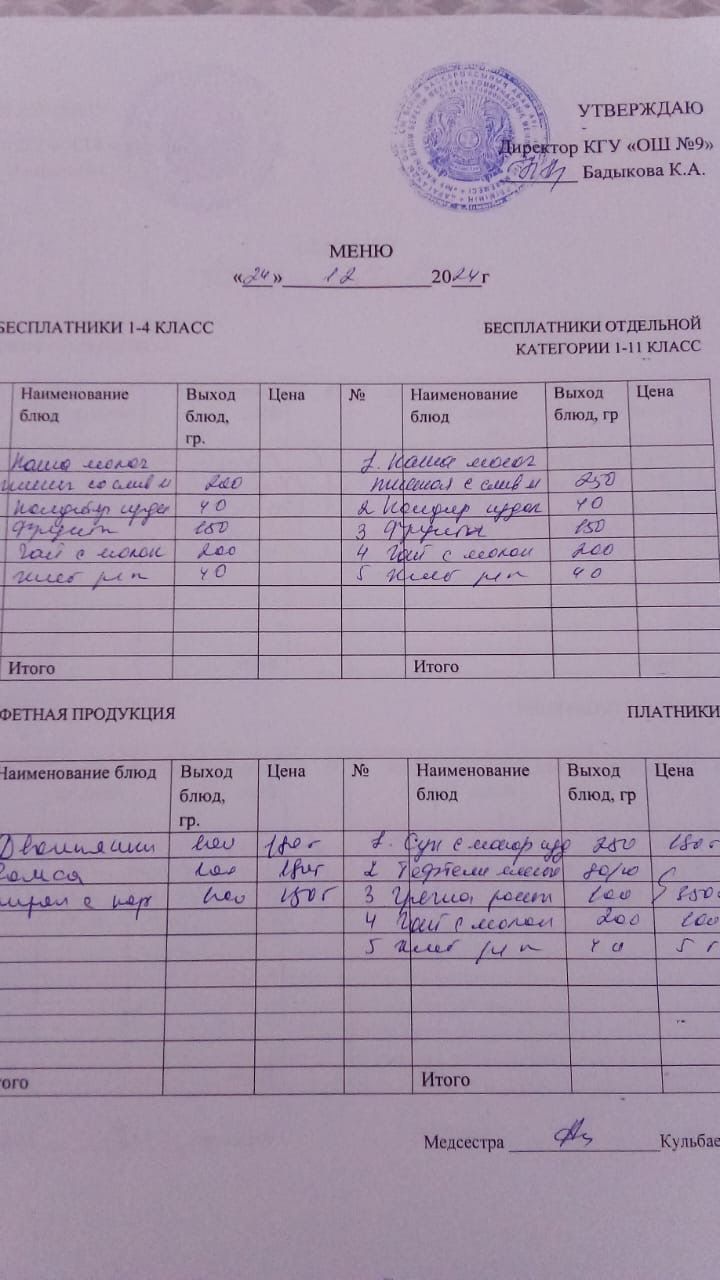 УТВЕРЖДАЮ
Директор КГУ «ОШ №9»
Бадыкова К.А.
МЕНЮ
«24» 12 2024г
БЕСПЛАТНИКИ 1-4 КЛАСС
БЕСПЛАТНИКИ ОТДЕЛЬНОЙ
КАТЕГОРИИ 1-11 КЛАСС
Наименование блюд Выход блюд, гр. Цена № Наименование блюд Выход блюд, гр Цена
Каша молоч 1. Каша молоч
со слив м 220 с слив м 250
40 2 40
Фрукты 150 3 Фрукты 150
Чай с молок 200 4 Чай с молок 200
хлеб рп 40 5 хлеб рп 40
Итого Итого
ФЕТНАЯ ПРОДУКЦИЯ ПЛАТНИКИ
Наименование блюд Выход блюд, гр. Цена № Наименование блюд Выход блюд, гр Цена
100 180г 1. Суп с макар изд 250 180г
самса 100 180г 2 Тефтели
100 150г 3 100 350
4 Чай с молок 200 100
5 хлеб рп 40 5 г
того Итого
Медсестра Кульбае